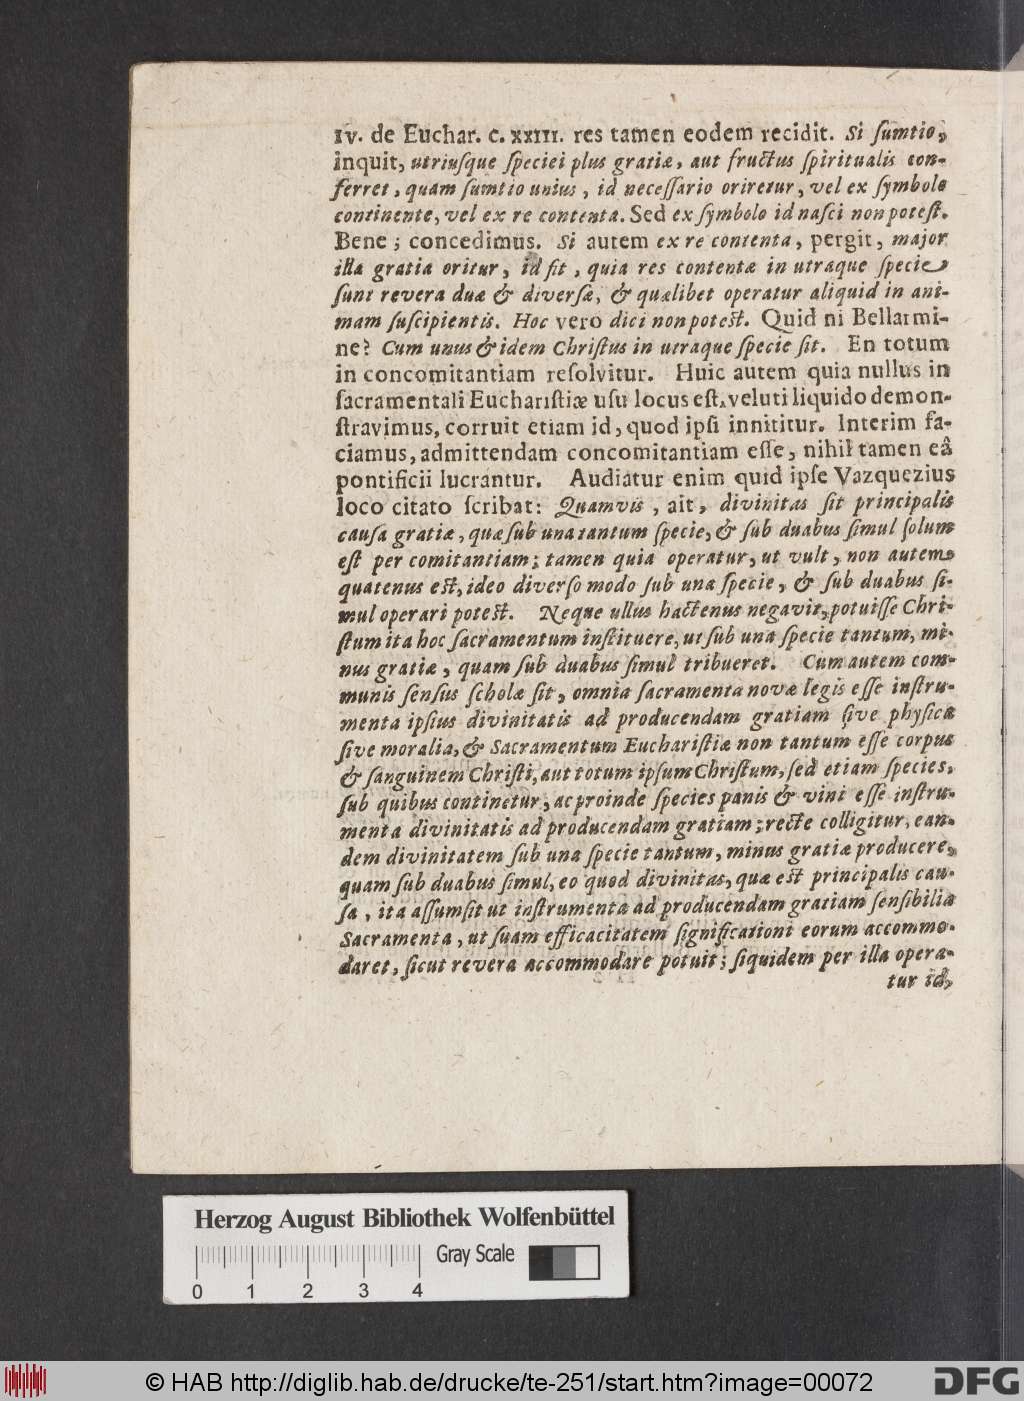 IV. de Euchar. c. XXIII. res tamen eodem recidit. Si ſumtio,
inquit, utriuſque ſpeciei plus gratiæ, aut fructus ſpiritualis con-
ferret, quam ſumtio unius, id neceſſario oriretur, vel ex ſymbolo
continente, vel ex re contenta. Sed ex ſymbolo id naſci non poteſt.
Bene; concedimus. Si autem ex re contenta, pergit, major
illa gratia oritur, id fit, quia res contentæ in utraque ſpecie
ſunt revera duæ & diverſæ, & quælibet operatur aliquid in ani-
mam ſuſcipientis. Hoc vero dici non poteſt. Quid ni Bellarmi-
ne? Cum unus & idem Chriſtus in utraque ſpecie ſit. En totum
in concomitantiam reſolvitur. Huic autem quia nullus in
ſacramentali Euchariſtiæ uſu locus eſt, veluti liquido demon-
ſtravimus, corruit etiam id, quod ipſi innititur. Interim fa-
ciamus, admittendam concomitantiam eſſe, nihil tamen eâ
pontificii lucrantur. Audiatur enim quid ipſe Vazquezius
loco citato ſcribat: Quamvis, ait, divinitas ſit principalis
cauſa gratiæ, quæ ſub una tantum ſpecie, & ſub duabus ſimul ſolum
eſt per comitantiam; tamen quia operatur, ut vult, non autem
quatenus eſt, ideo diverſo modo ſub una ſpecie, & ſub duabus ſi-
mul operari poteſt. Neque ullus hactenus negavit, potuiſſe Chri-
ſtum ita hoc ſacramentum inſtituere, ut ſub una ſpecie tantum, mi-
nus gratiæ, quam ſub duabus ſimul tribueret. Cum autem com-
munis ſenſus ſcholæ ſit, omnia ſacramenta novæ legis eſſe inſtru-
menta ipſius divinitatis ad producendam gratiam ſive phyſica
ſive moralia, & Sacramentum Euchariſtiæ non tantum eſſe corpus
& ſanguinem Chriſti, aut totum ipſum Chriſtum, ſed etiam ſpecies,
ſub quibus continetur, ac proinde ſpecies panis & vini eſſe inſtru-
menta divinitatis ad producendam gratiam; recte colligitur, ean-
dem divinitatem ſub una ſpecie tantum, minus gratiæ producere,
quam ſub duabus ſimul, eo quod divinitas, quæ eſt principalis cau-
ſa, ita aſſumſit ut inſtrumenta ad producendam gratiam ſenſibilia
Sacramenta, ut ſuam efficacitatem ſignificationi eorum accommo-
daret, ſicut revera accommodare potuit; ſiquidem per illa opera-
tur id,
Herzog August Bibliothek Wolfenbüttel
Gray Scale
0 1 2 3 4
© HAB http://diglib.hab.de/drucke/te-251/start.htm?image=00072
DFG